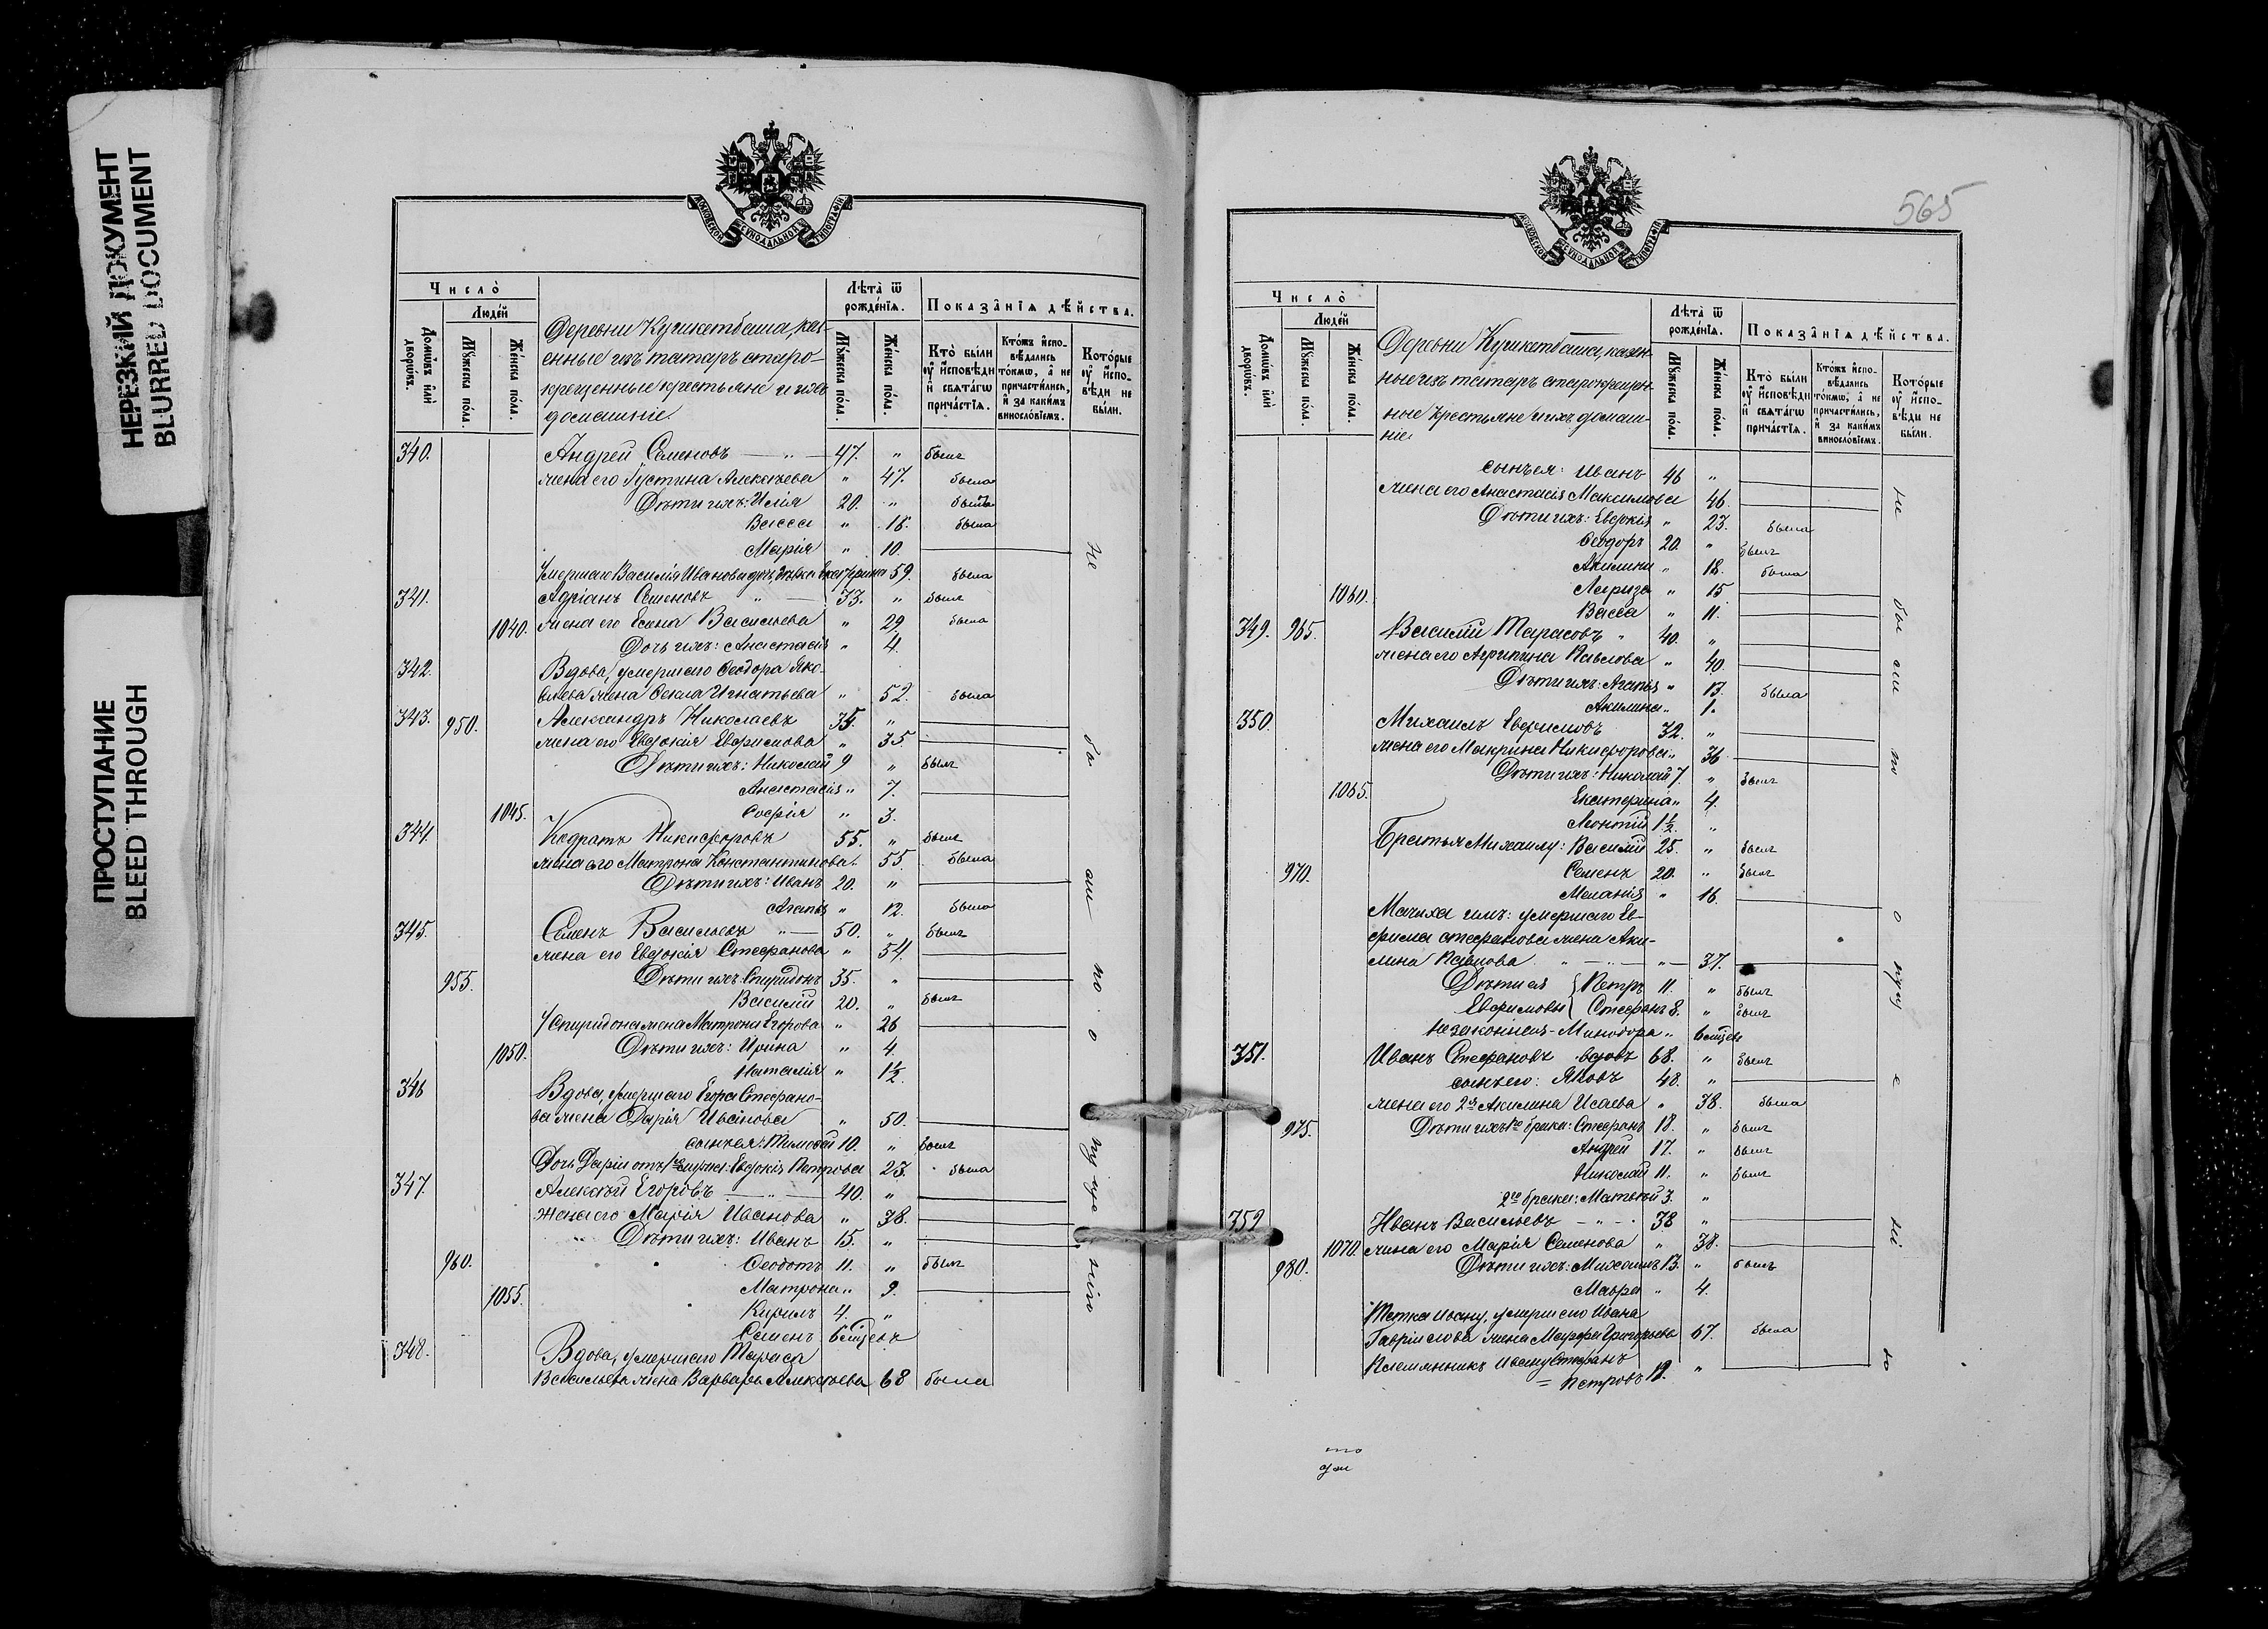 НЕРЕЗКИЙ ДОКУМЕНТ
BLURRED DOCUMENT
ПРОСТУПАНИЕ
BLEED THROUGH
МОСКОВСКОЙ СѴНОДАЛЬНОЙ ТИПОГРАФІИ
Число̀
Людей
Домѡвъ или дворѡвъ.
Мꙋжеска пола.
Женска пола.
Деревни Кучукетбаша, каз-
енные изъ татаръ старо-
крещенные крестьяне и ихъ
домашніе
Лѣта ѿ рожденїѧ.
Мꙋжеска пола.
Женска пола.
Показанїѧ дѣйства.
Кто были оу исповѣди и свѧтагѡ причастїѧ.
Ктожъ исповѣдались токмѡ, а не причастились, и за какимъ винословїемъ.
Которые оу исповѣди не были.
340. Андрей Семеновъ — " — 47. " былъ
жена его Густина Алексѣева " 47. была
Дѣти ихъ: Илія 20. " былъ
Васса " 18. была
Марія " 10.
Умершаго Василія Иванова дочь дѣвка Екатерина 59. была
341. Адріанъ Семеновъ " — 33. " былъ
1040. жена его Васильева " 29 была
Дочь ихъ: Анастасія " 4.
342. Вдова, умершаго Ѳеодора Яко-
влева жена Ѳекла Игнатьева " 52. была
343. 950. Александръ Николаевъ 35. "
жена его Евдокія Евфимова " 35.
Дѣти ихъ: Николай 9 " былъ
Анастасія " 7.
1045. Софія " 3.
344. Кодратъ Никифоровъ 55. " былъ
жена его Матрона Константинова. 55. была
Дѣти ихъ: Иванъ 20. "
Агапія " 12. была
345. Семенъ Васильевъ " — 50. " былъ
жена его Евдокія Стефанова " 54.
955. Дѣти ихъ Спиридонъ 35. "
Василій 20. " былъ
У Спиридона жена Матрона Егорова " 26
1050. Дѣти ихъ: Ирина " 4.
Наталія " 1½.
346 Вдова, умершаго Егора Стефано-
ва жена Дарія Иванова " 50.
сынъ ея: Тимоѳей 10. " былъ
Дочь Даріи отъ 1го мужа: Евдокія Петрова 23. была
347. Алексѣй Егоровъ — " — 40. "
жена его Марія Иванова " 38.
Дѣти ихъ: Иванъ 15. "
960. Ѳеодотъ 11. " былъ
1055. Матрона " 9.
Кирилъ 4. "
Семенъ 6 мѣсяцевъ
348. Вдова, умершаго Тараса
Васильева жена Варвара Алексѣева 68 была
Не бы ли по о пу ще нію
565
МОСКОВСКОЙ СѴНОДАЛЬНОЙ ТИПОГРАФІИ
Число̀
Людей
Домѡвъ или дворѡвъ.
Мꙋжеска пола.
Женска пола.
Деревни Кучукетбаша, казен-
ные изъ татаръ старокрещен-
ные крестьяне и ихъ домаш-
ніе
Лѣта ѿ рожденїѧ.
Мꙋжеска пола.
Женска пола.
Показанїѧ дѣйства.
Кто были оу исповѣди и свѧтагѡ причастїѧ.
Ктожъ исповѣдались токмѡ, а не причастились, и за какимъ винословїемъ.
Которые оу исповѣди не были.
сынъ ея: Иванъ 46 "
жена его Анастасія Максимова 46.
Дѣти ихъ: Евдокія " 23. была
Ѳеодоръ 20. " былъ
Акилина " 18. была
1060. " 15
Васса " 11.
349. 965. Василій Тарасовъ " 40. "
жена его Агрипина Павлова " 40.
Дѣти ихъ: Агапія " 13. была
Акилина " 1.
350. Михаилъ Евфимовъ 32. "
жена его Макрина Никифорова " 36
Дѣти ихъ: Николай 7. " былъ
1065. Екатерина " 4.
Леонтій 1½. "
Братья Михаилу: Василій 25. " былъ
970. Семенъ 20. " былъ
Меланія " 16.
Мачиха имъ: умершаго Ев-
фима Стефанова жена Аки-
лина Павлова " — " — 37.
Дѣти ея Петръ 11. " былъ
Евфимовы Стефанъ 8. " былъ
незаконная - Минодора " 6 мѣсяцевъ
351. Иванъ Стефановъ вдовъ 68. " былъ
сынъ его: Яковъ 48. "
жена его 2я Акилина Исаева " 38. была
975. Дѣти ихъ 1го брака: Стефанъ 18. " былъ
Андрей 17. " былъ
Николай 11. " былъ
2го брака: Матвѣй 3. "
352 Иванъ Васильевъ — " — 38 "
1070. жена его Марія Семенова " 38.
980. Дѣти ихъ: Михаилъ 13. " былъ
Мавра " 4.
Тетка Ивану, умершаго Ивана
Гавріилова жена Марѳа Григорьева 67. была
Племянникъ Ивану Стефанъ
= Петровъ 19. "
не бы ли по о пущ е ні ю